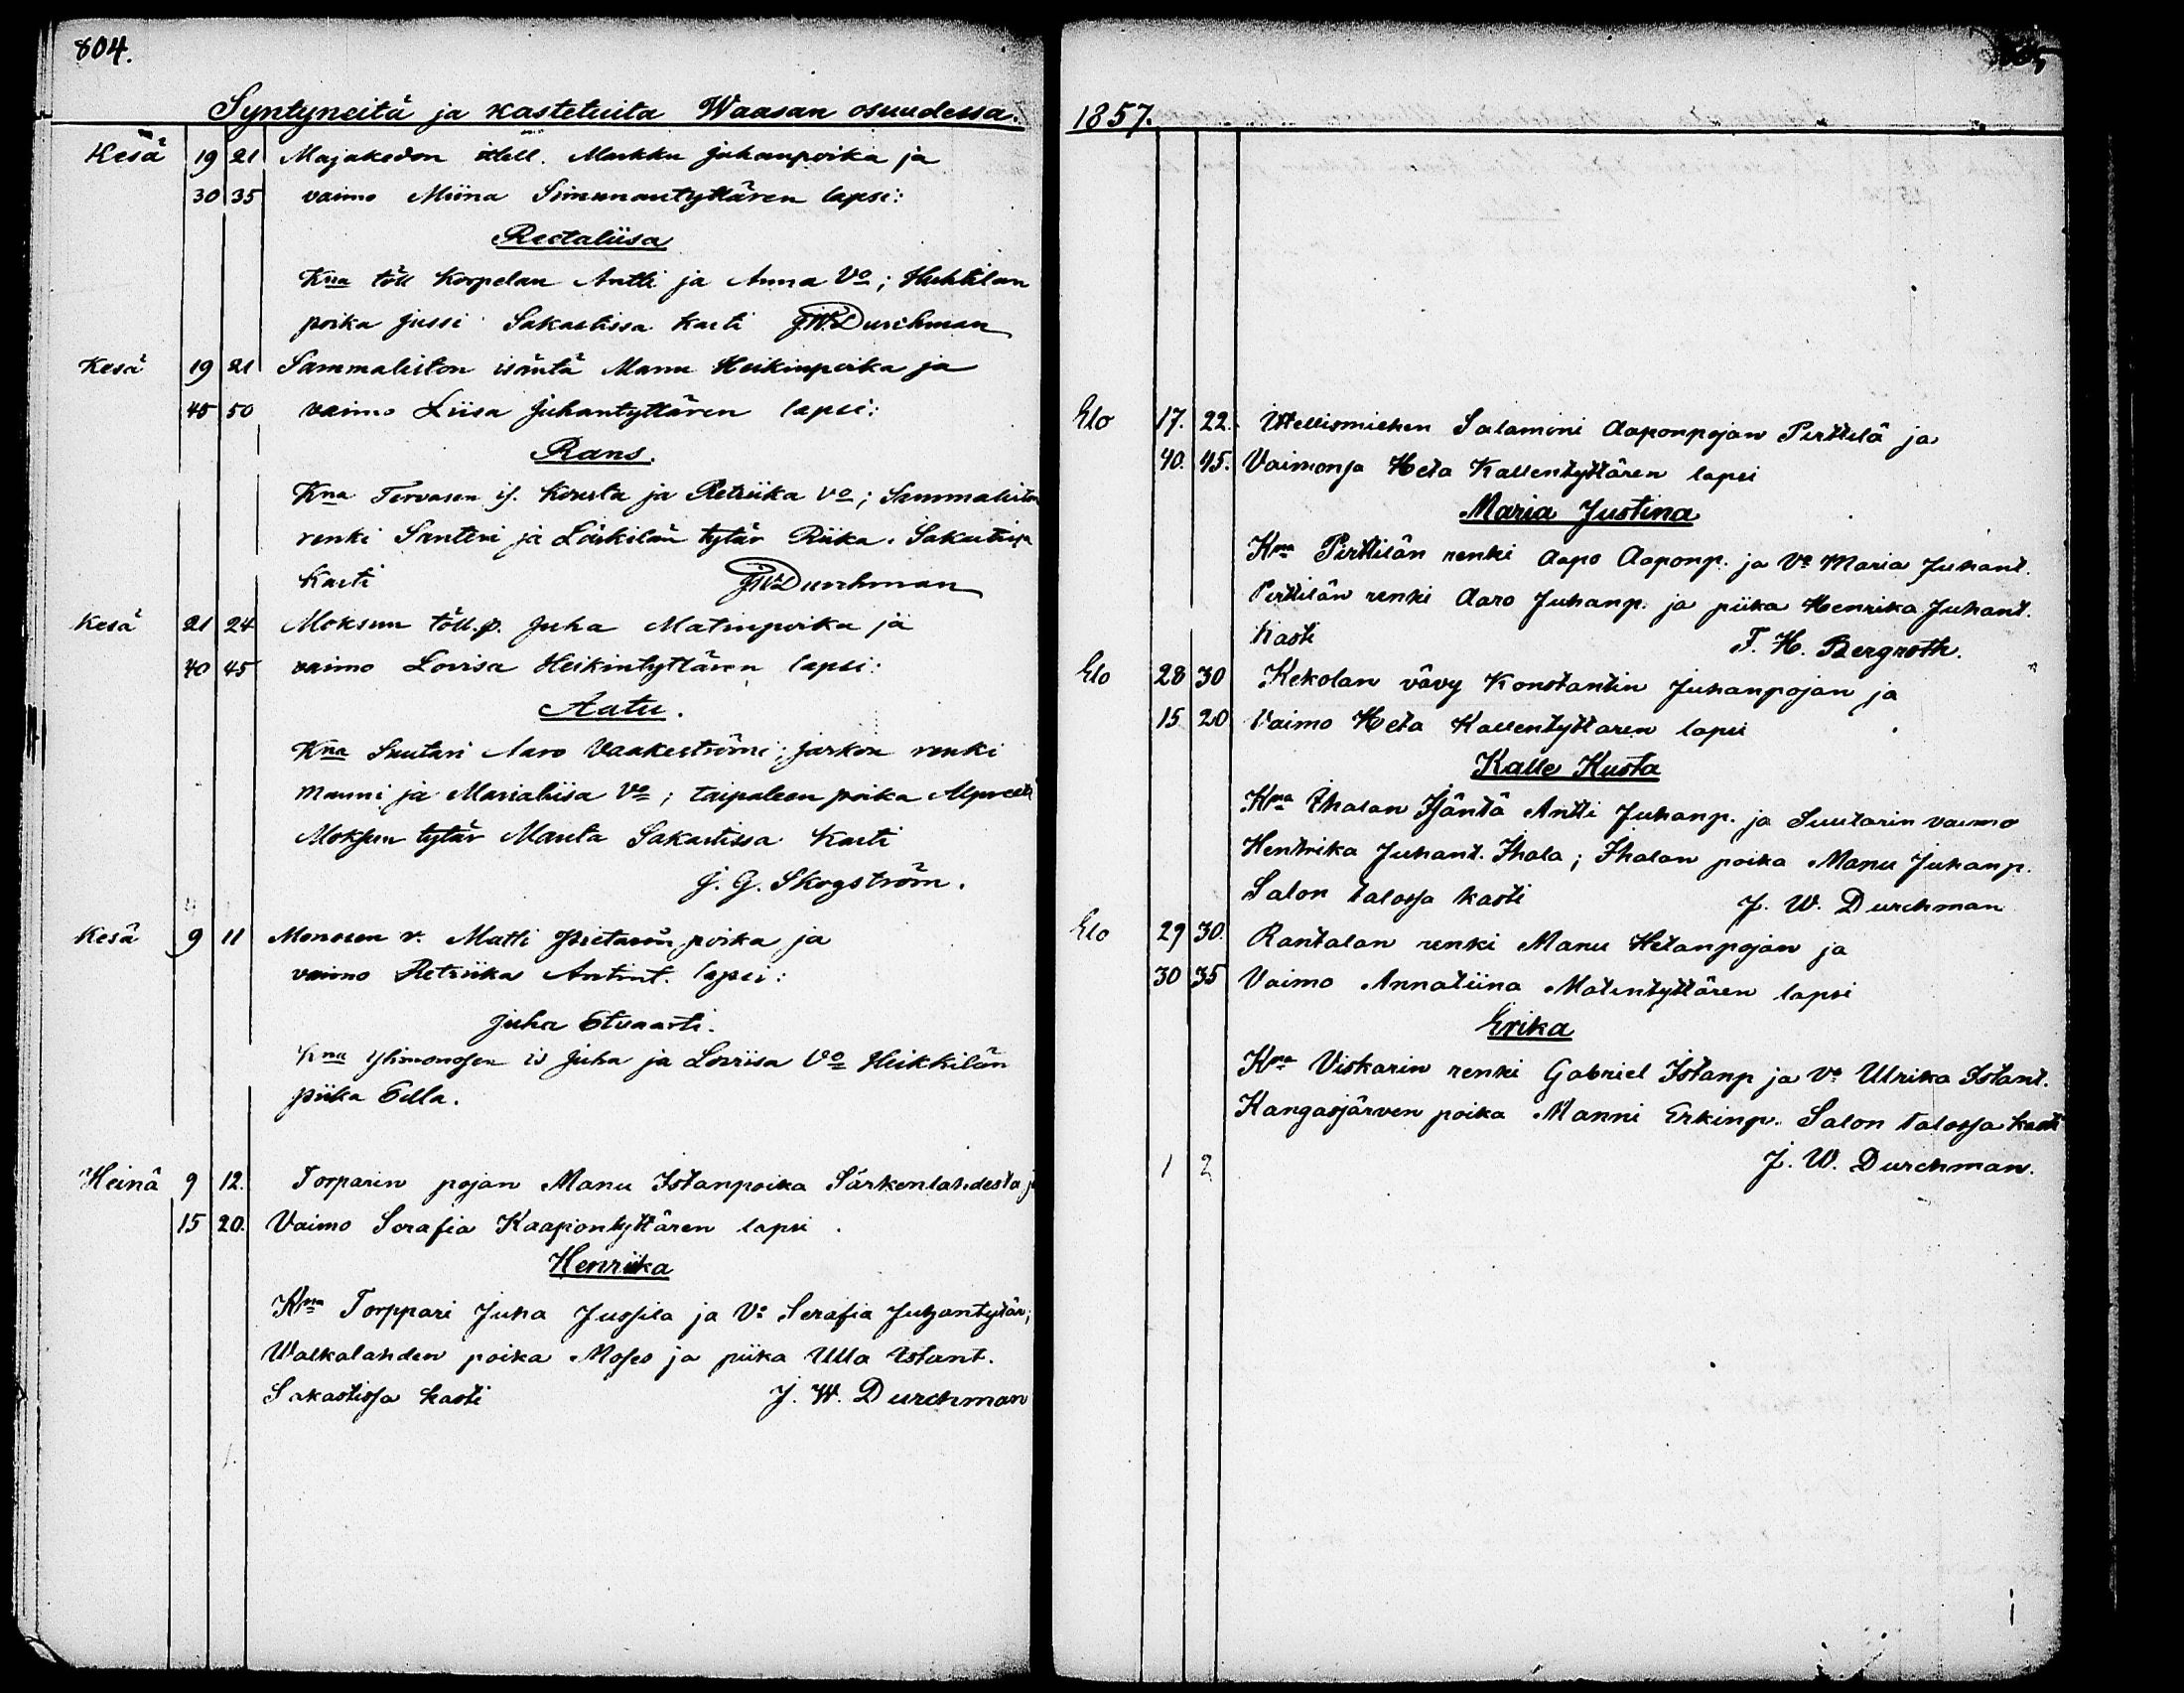 804.
Syntyneitä ja kastetuita Waasan osuudessa.
Kesä 19 21 Majakedon itell. Markku Juhanpoika ja
30 35 vaimo Miina Simunantyttären lapsi:
Reetaliisa
Kna töll Korpelan Antti ja Anna Vo; Huhtilan
poika Jussi Sakastissa kasti J.W. Durchman
Kesä 19 21 Sammaliston isäntä Manu Heikinpoika ja
45 50 vaimo Liisa Juhantyttären lapsi:
Rans.
Kna Tervasen is. Kousta ja Retriika Vo; Sammaliston
renki Santeri ja tytär Riika.
Kasti J.W. Durchman
Kesä 21 24 Moksun töll.p. Juha Matinpoika ja
40 45 vaimo Lovisa Heikintyttären lapsi:
Aatu.
Kna Suutari Aaro Vaakeströmi; Jarkon renki
Manni ja Marialiisa Vo; taipaleen poika
Moksun tytär Manta Sakastissa Kasti
J. G. Skogström.
Kesä 9 11 Monosen v. Matti Pietarin poika ja
vaimo Retriika Antint. lapsi:
Juha Etvaarti.
Kna Ylimonosen is Juha ja Loviisa Vo Heikkilän
piika Ella.
Heinä 9 12. Torparin pojan Manu Istanpoika Särkenlahdesta ja
15 20. Vaimo Serafia Kaapontyttären lapsi.
Henriika
Kna Torppari Juha Jussila ja Vo Serafia Juhantytär;
Walkalahden poika Moses ja piika Ulla Istant.
Sakastissa kasti J. W. Durchman
1857.
Elo 17. 22. Ittellismiehen Salamoni Aaponpojan Pirttilä ja
40. 45. Vaimonsa Heta Kallentyttären lapsi
Maria Justina
Kna Pirttilän renki Aapo Aaponp. ja Vo Maria Juhant.
Pirttilän renki Aaro Juhanp. ja piika Henrika Juhant.
Kasti F. H. Bergroth.
Elo 28 30 Kekolan vävy Konstantin Juhanpojan ja
15 20 Vaimo Heta Kallentyttaren lapsi
Kalle Kusta
Kna Ihalan Isäntä Antti Juhanp. ja Suutarin vaimo
Hentrika Juhant. Ihala; Ihalan poika Manu Juhanp.
Salon talossa kasti J. W. Durchman
Elo 29 30. Rantalan renki Manu Hetanpojan ja
30 35 Vaimo Annatiina Matintyttären lapsi
Erika
Kna Viskarin renki Gabriel Istanp ja Vo Ulrika Istant.
Kangasjärven poika Manni Erkinp. Salon talossa kasti
1 2 J. W. Durchman.